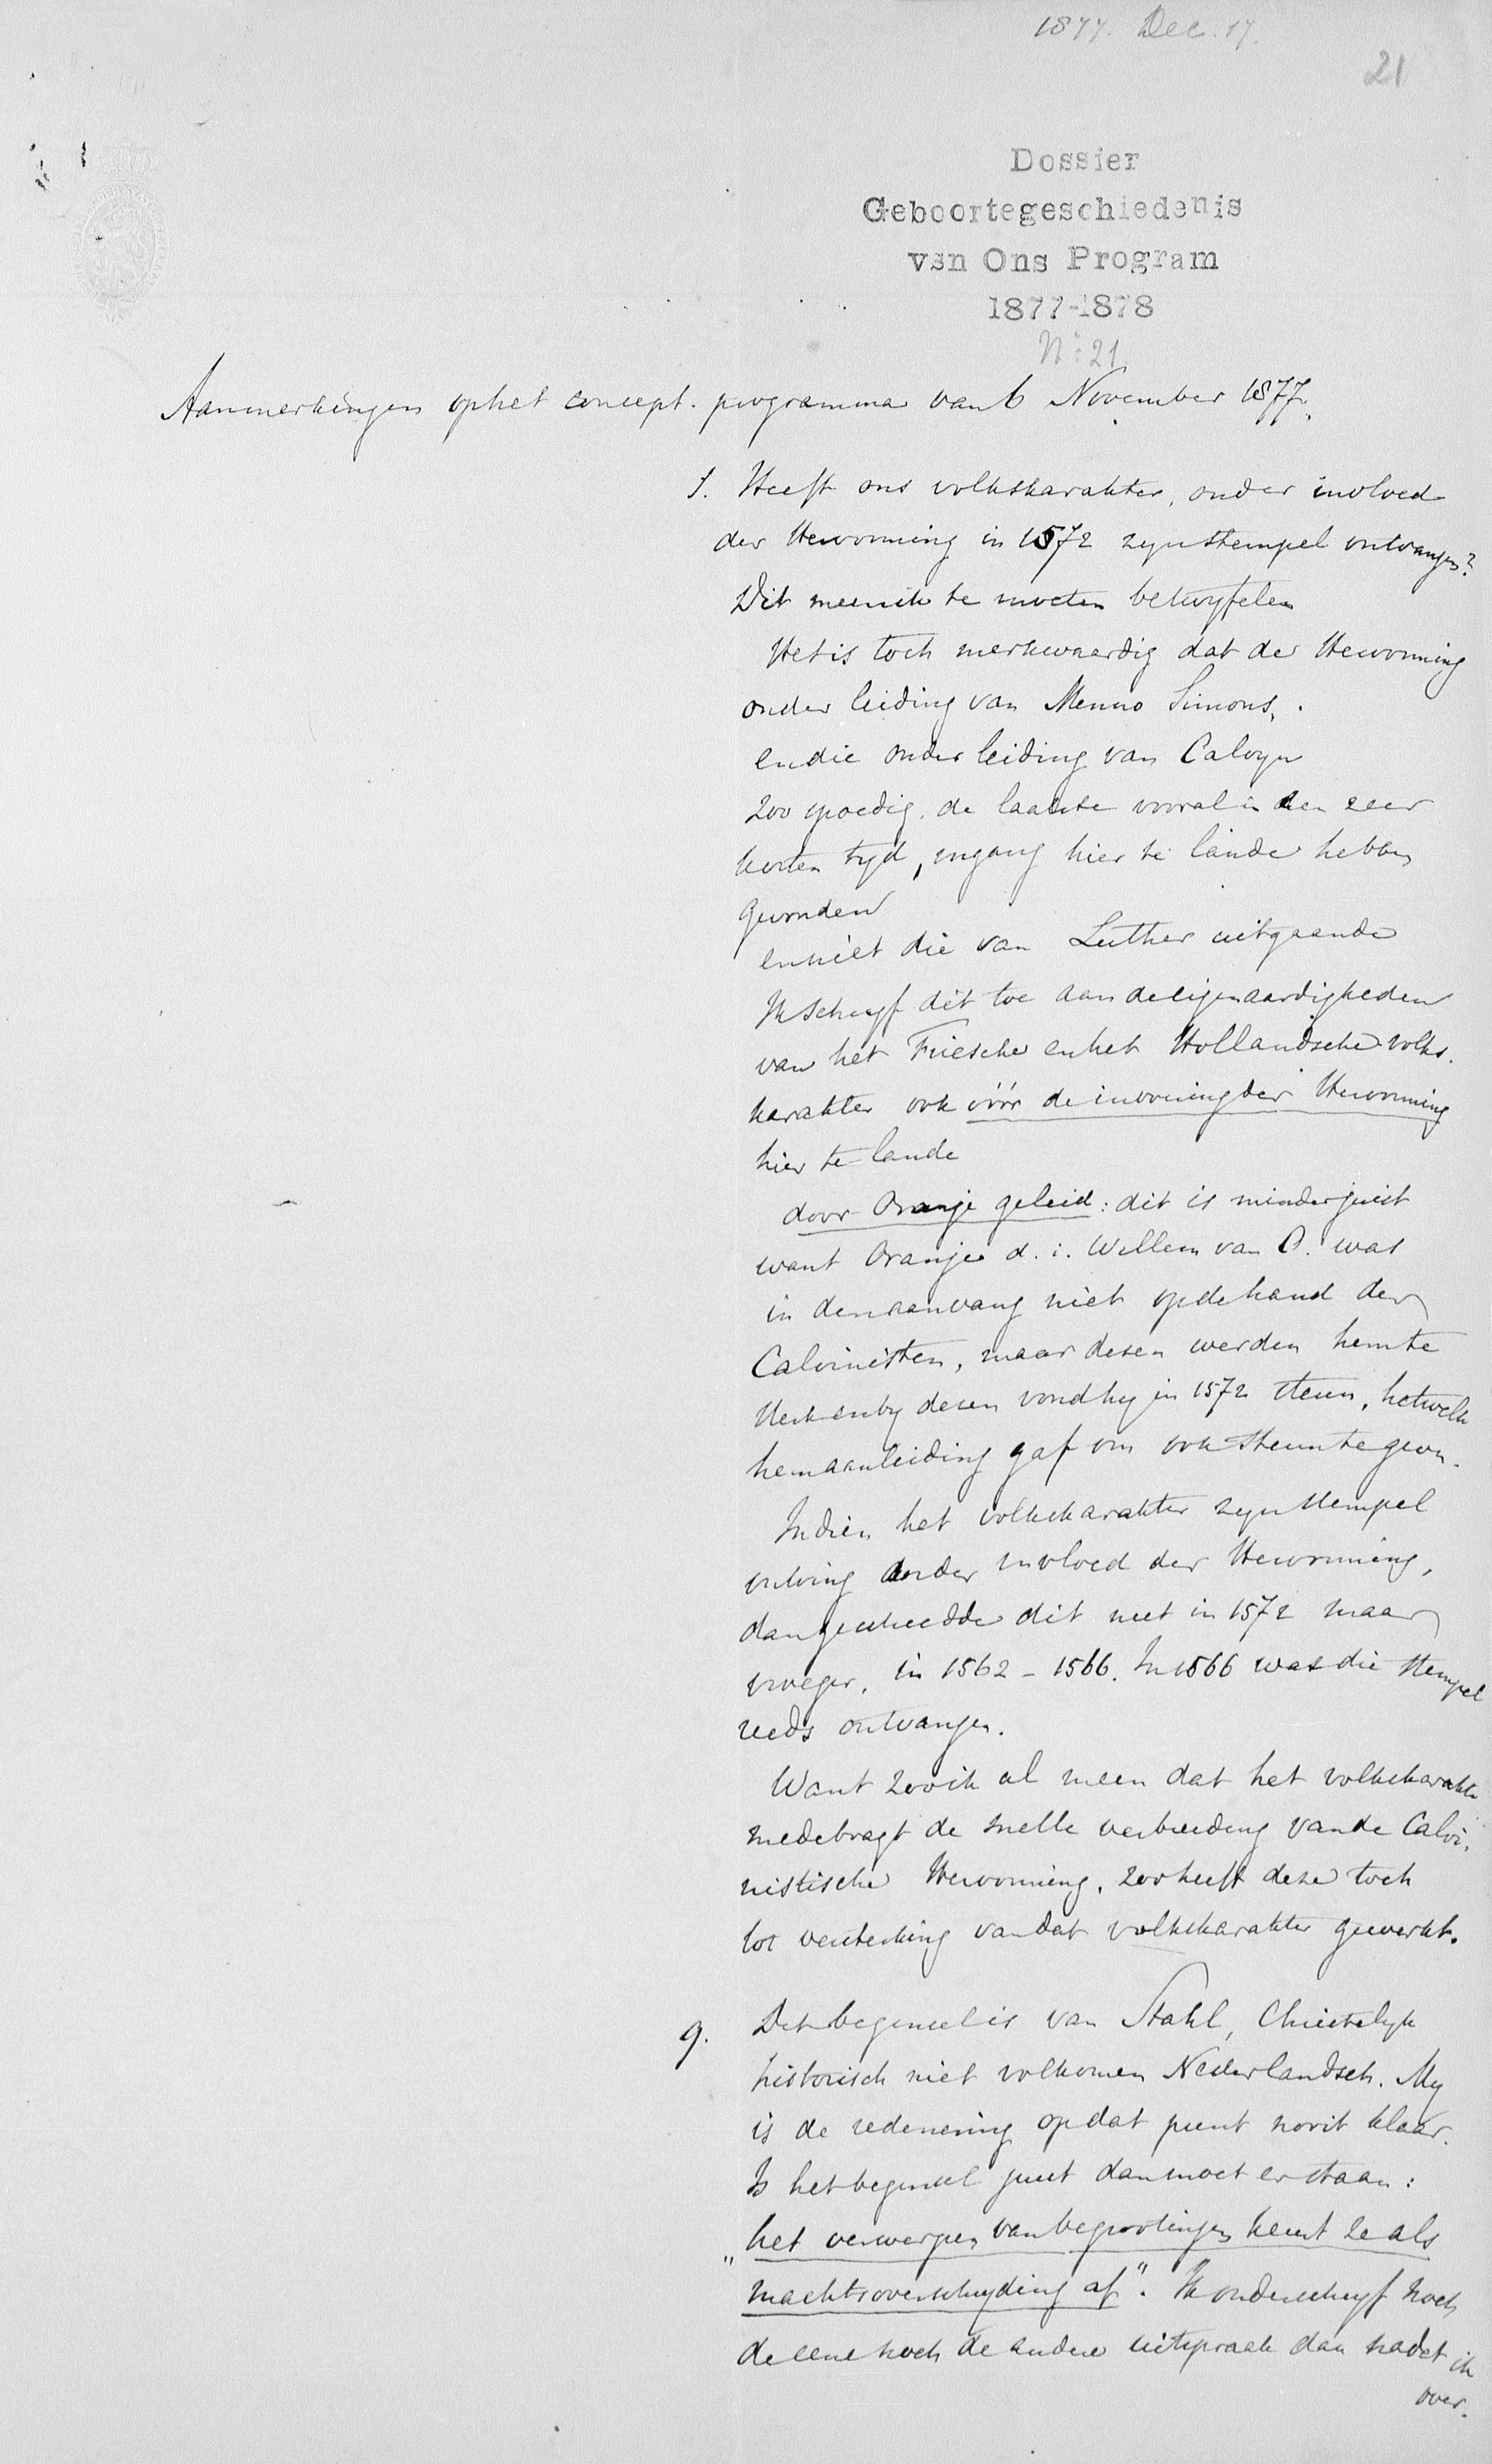 1877. Dec. 17.
21
Dossier
Geboortegeschiedenis
vsn Ons Program
1877-1878
No: 21.
Aanmerkingen op het concept-programma van 6 November 1877.
1. Heeft ons volkskarakter, onder invloed
der Hervorming in 1572 zyn stempel ontvangen?
Dit meen ik te moeten betwyfelen
Het is toch merkwaardig dat de Hervorming
onder leiding van Menno Simons,
en die onder leiding van Calvyn
zoo spoedig, de laatste vooral in een zeer
korten tyd, ingang hier te lande hebben
gevonden
en niet die van Luther uitgaande
Ik schryf dit toe aan de eigenaardigheden
van het Friesche en het Hollandsche volks-
karakter ook vóór de invoering der Hervorming
hier te lande
door Oranje geleid: dit is minder juist
want Oranje d. i. Willem van O. was
in den aanvang niet op de hand der
Calvinisten, maar dezen werden hem te
sterk en by dezen vond hy in 1572 steun, hetwelk
hem aanleiding gaf om ook steun te geven.
Indien het volkskarakter zyn stempel
ontving onder invloed der Hervorming,
dan geschiedde dit niet in 1572 maar
vroeger, in 1562 - 1566. In 1566 was die stempel
reeds ontvangen.
Want zoo ik al meen dat het volkskarakter
medebragt de snelle verbreiding van de Calvi-
nistische Hervorming, zoo heeft deze toch
tot versterking van dat volkskarakter gewerkt.
9. Dit beginsel is van Stahl, Christelyk
historisch niet volkomen Nederlandsch. My
is de redenering op dat punt nooit klaar.
Is het beginsel juist dan moet er staan:
„het verwerpen van begrootingen keurt ze als
machtsoverschryding af". Ik onderschryf noch
de eene noch de andere uitspraak dan nadat ik
over.